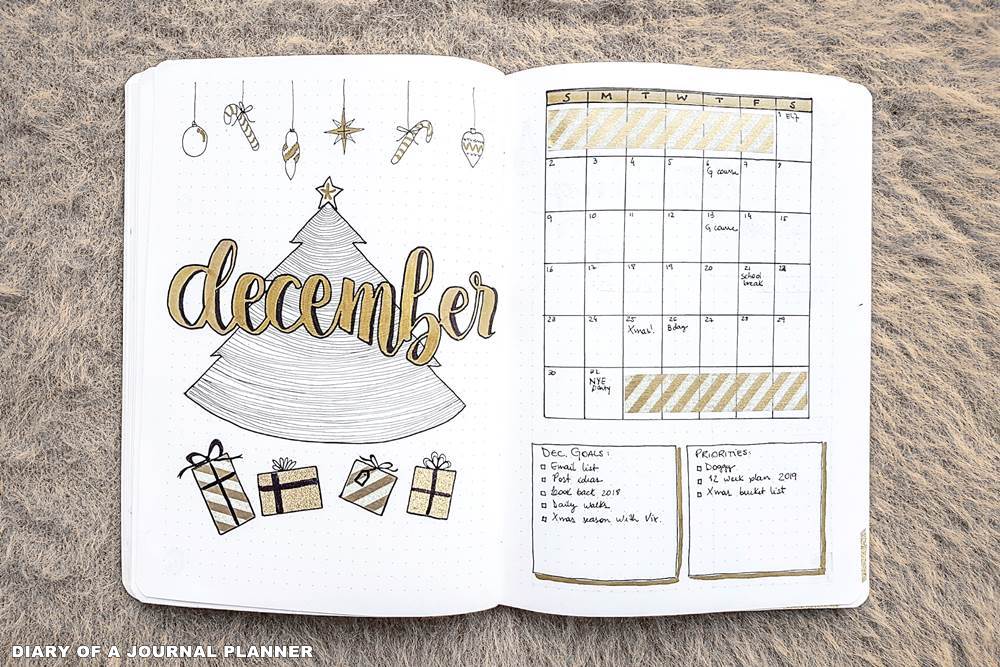 december
S M T W T F S
1 ELF
2 3 4 5 6 7 8
G course
9 10 11 12 13 14 15
G course
16 17 18 19 20 21 22
School
break
23 24 25 26 27 28 29
Xmas! Bday
30 31
NYE
party
DEC. GOALS:
Email list
Post ideas
Look back 2018
Daily walks
Xmas season with Vix.
PRIORITIES:
Doggy
12 week plan 2019
Xmas bucket list
DIARY OF A JOURNAL PLANNER